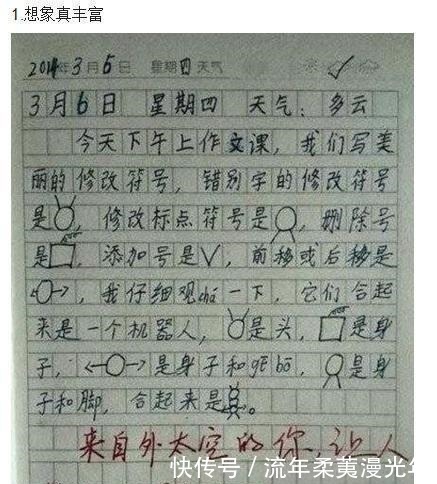 1.想象真丰富
2014年3月6日 星期四 天气
3月6日 星期四 天气：多云
今天下午上作文课，我们写美
丽的修改符号，错别字的修改符号
是 修改标点符号是 ，删除号
是 ，添加号是V，前移或后移是
，我仔细观chá一下，它们合起
来是一个机器人， 是头， 是身
子， 是身子和gē bō， 是身
子和脚，合起来是 。
来自外太空的你，让人
快传号／流年柔荑漫光年